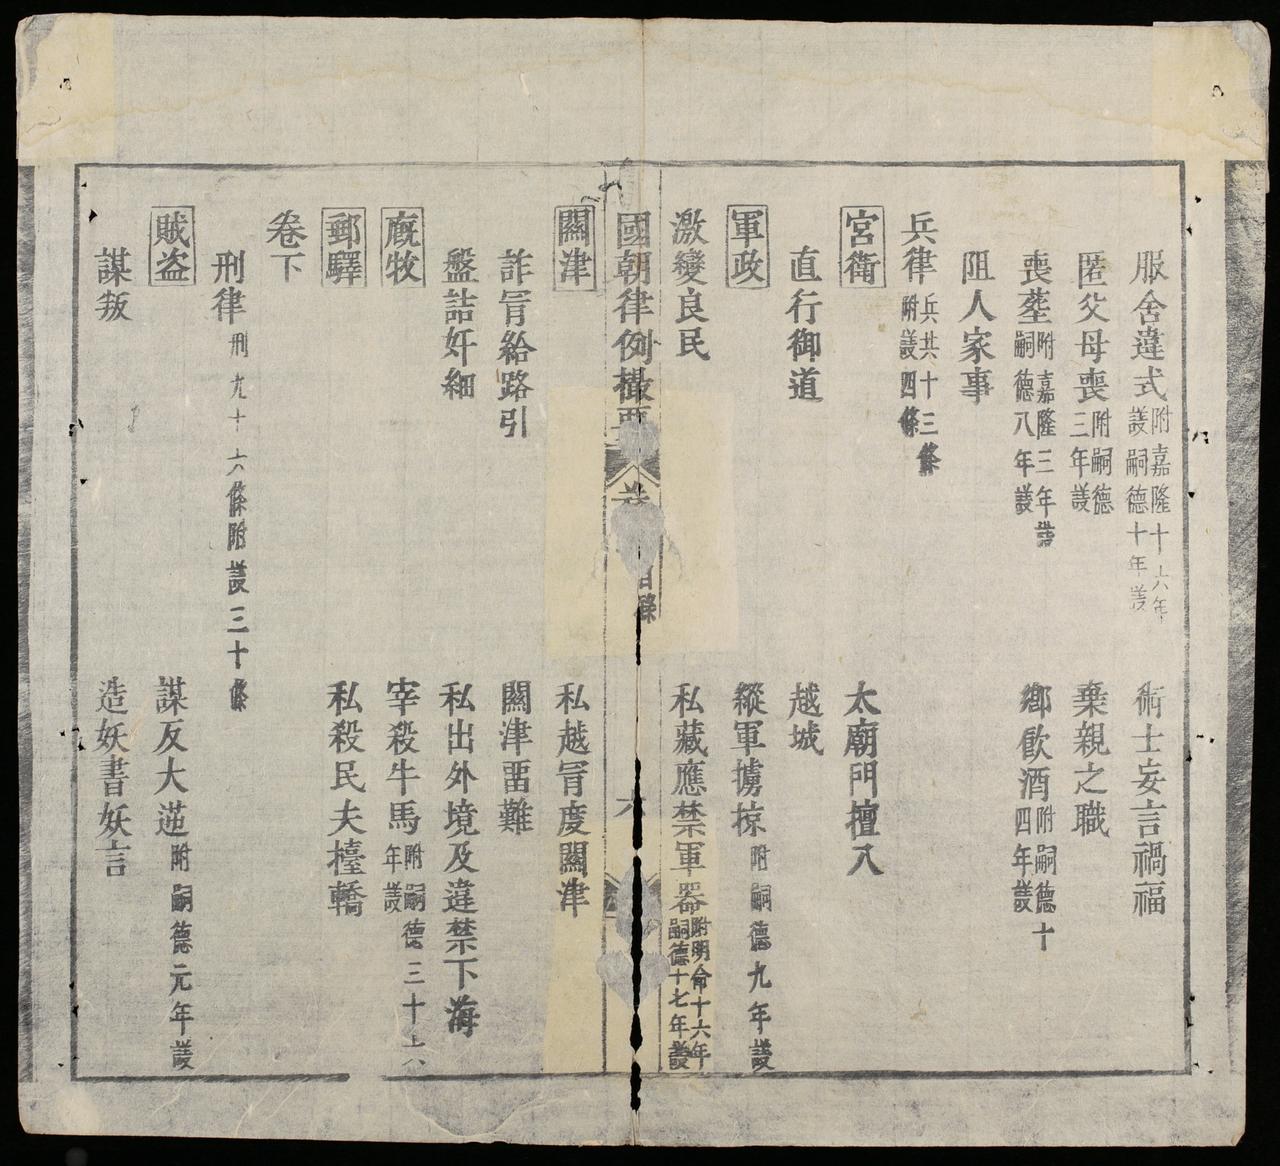 服舍違式 附嘉隆十六年議嗣德十年議 術士妄言禍福
匿父母喪 附嗣德三年議 棄親之職
喪塟 附嘉隆三年議嗣德八年議 鄉飮酒 附嗣德十四年議
阻人家事
兵律 兵共十三條附議四條
宮衛 太廟門擅入
直行御道 越城
軍政 縱軍擄掠 附嗣德九年議
激變良民 私藏應禁軍器 附明命十六年嗣德十七年議
國朝律例撮要 卷 目條 六
關津 私越冐度關津
詐冐給路引 關津畱難
盤詰奸細 私出外境及違禁下海
廐牧 宰殺牛馬 附嗣德三十六年議
郵驛 私殺民夫檯轎
卷下
刑律 刑九十六條附議三十條
賊盗 謀反大逆 附嗣德元年議
謀叛 造妖書妖言